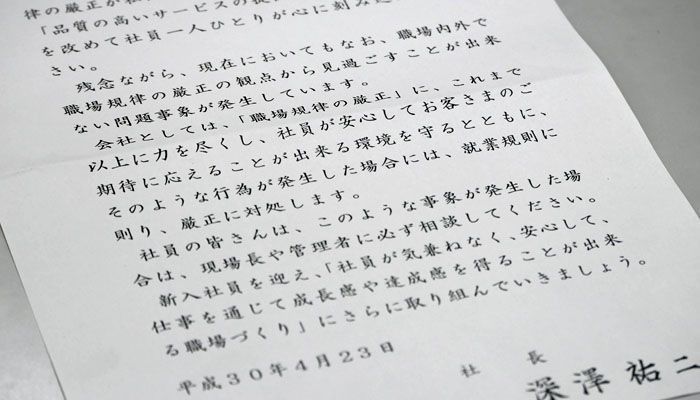 律の厳正が
「品質の高いサービスの提
を改めて社員一人ひとりが心に刻み込
さい。
残念ながら、現在においてもなお、職場内外で
職場規律の厳正の観点から見過ごすことが出来
ない問題事象が発生しています。
会社としては、「職場規律の厳正」に、これまで
以上に力を尽くし、社員が安心してお客さまのご
期待に応えることが出来る環境を守るとともに、
そのような行為が発生した場合には、就業規則に
則り、厳正に対処します。
社員の皆さんは、このような事象が発生した場
合は、現場長や管理者に必ず相談してください。
新入社員を迎え、「社員が気兼ねなく、安心して、
仕事を通じて成長感や達成感を得ることが出来
る職場づくり」にさらに取り組んでいきましょう。
平成30年4月23日
社長
深澤祐二